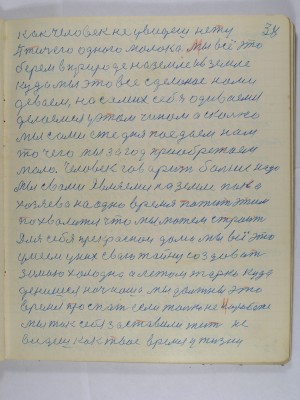 как человек не увидеш нету 38
птичего одного молока. Мы всё это
берем в природе на земле и в земле
куда мы это все сделаное нами
деваем, на самих себя одиваем и
делаемся этом чином а сколко
мы сами сже дня поедаем нам
то чего мы за год приобретаем
мало. Человек говарит болше надо
Мы с вами являеми на земле пока
хозяева на одно время потом этим
похвалится что мы можем строит
для себя прекрасной дома мы всё это
умеем у них свою тайну создават
зимою холодно а летом жарко куда
денишся ночная мы должны это
время проспат если толко не наработе
мы так себя заставили жит не
видеш как твое время у тизну